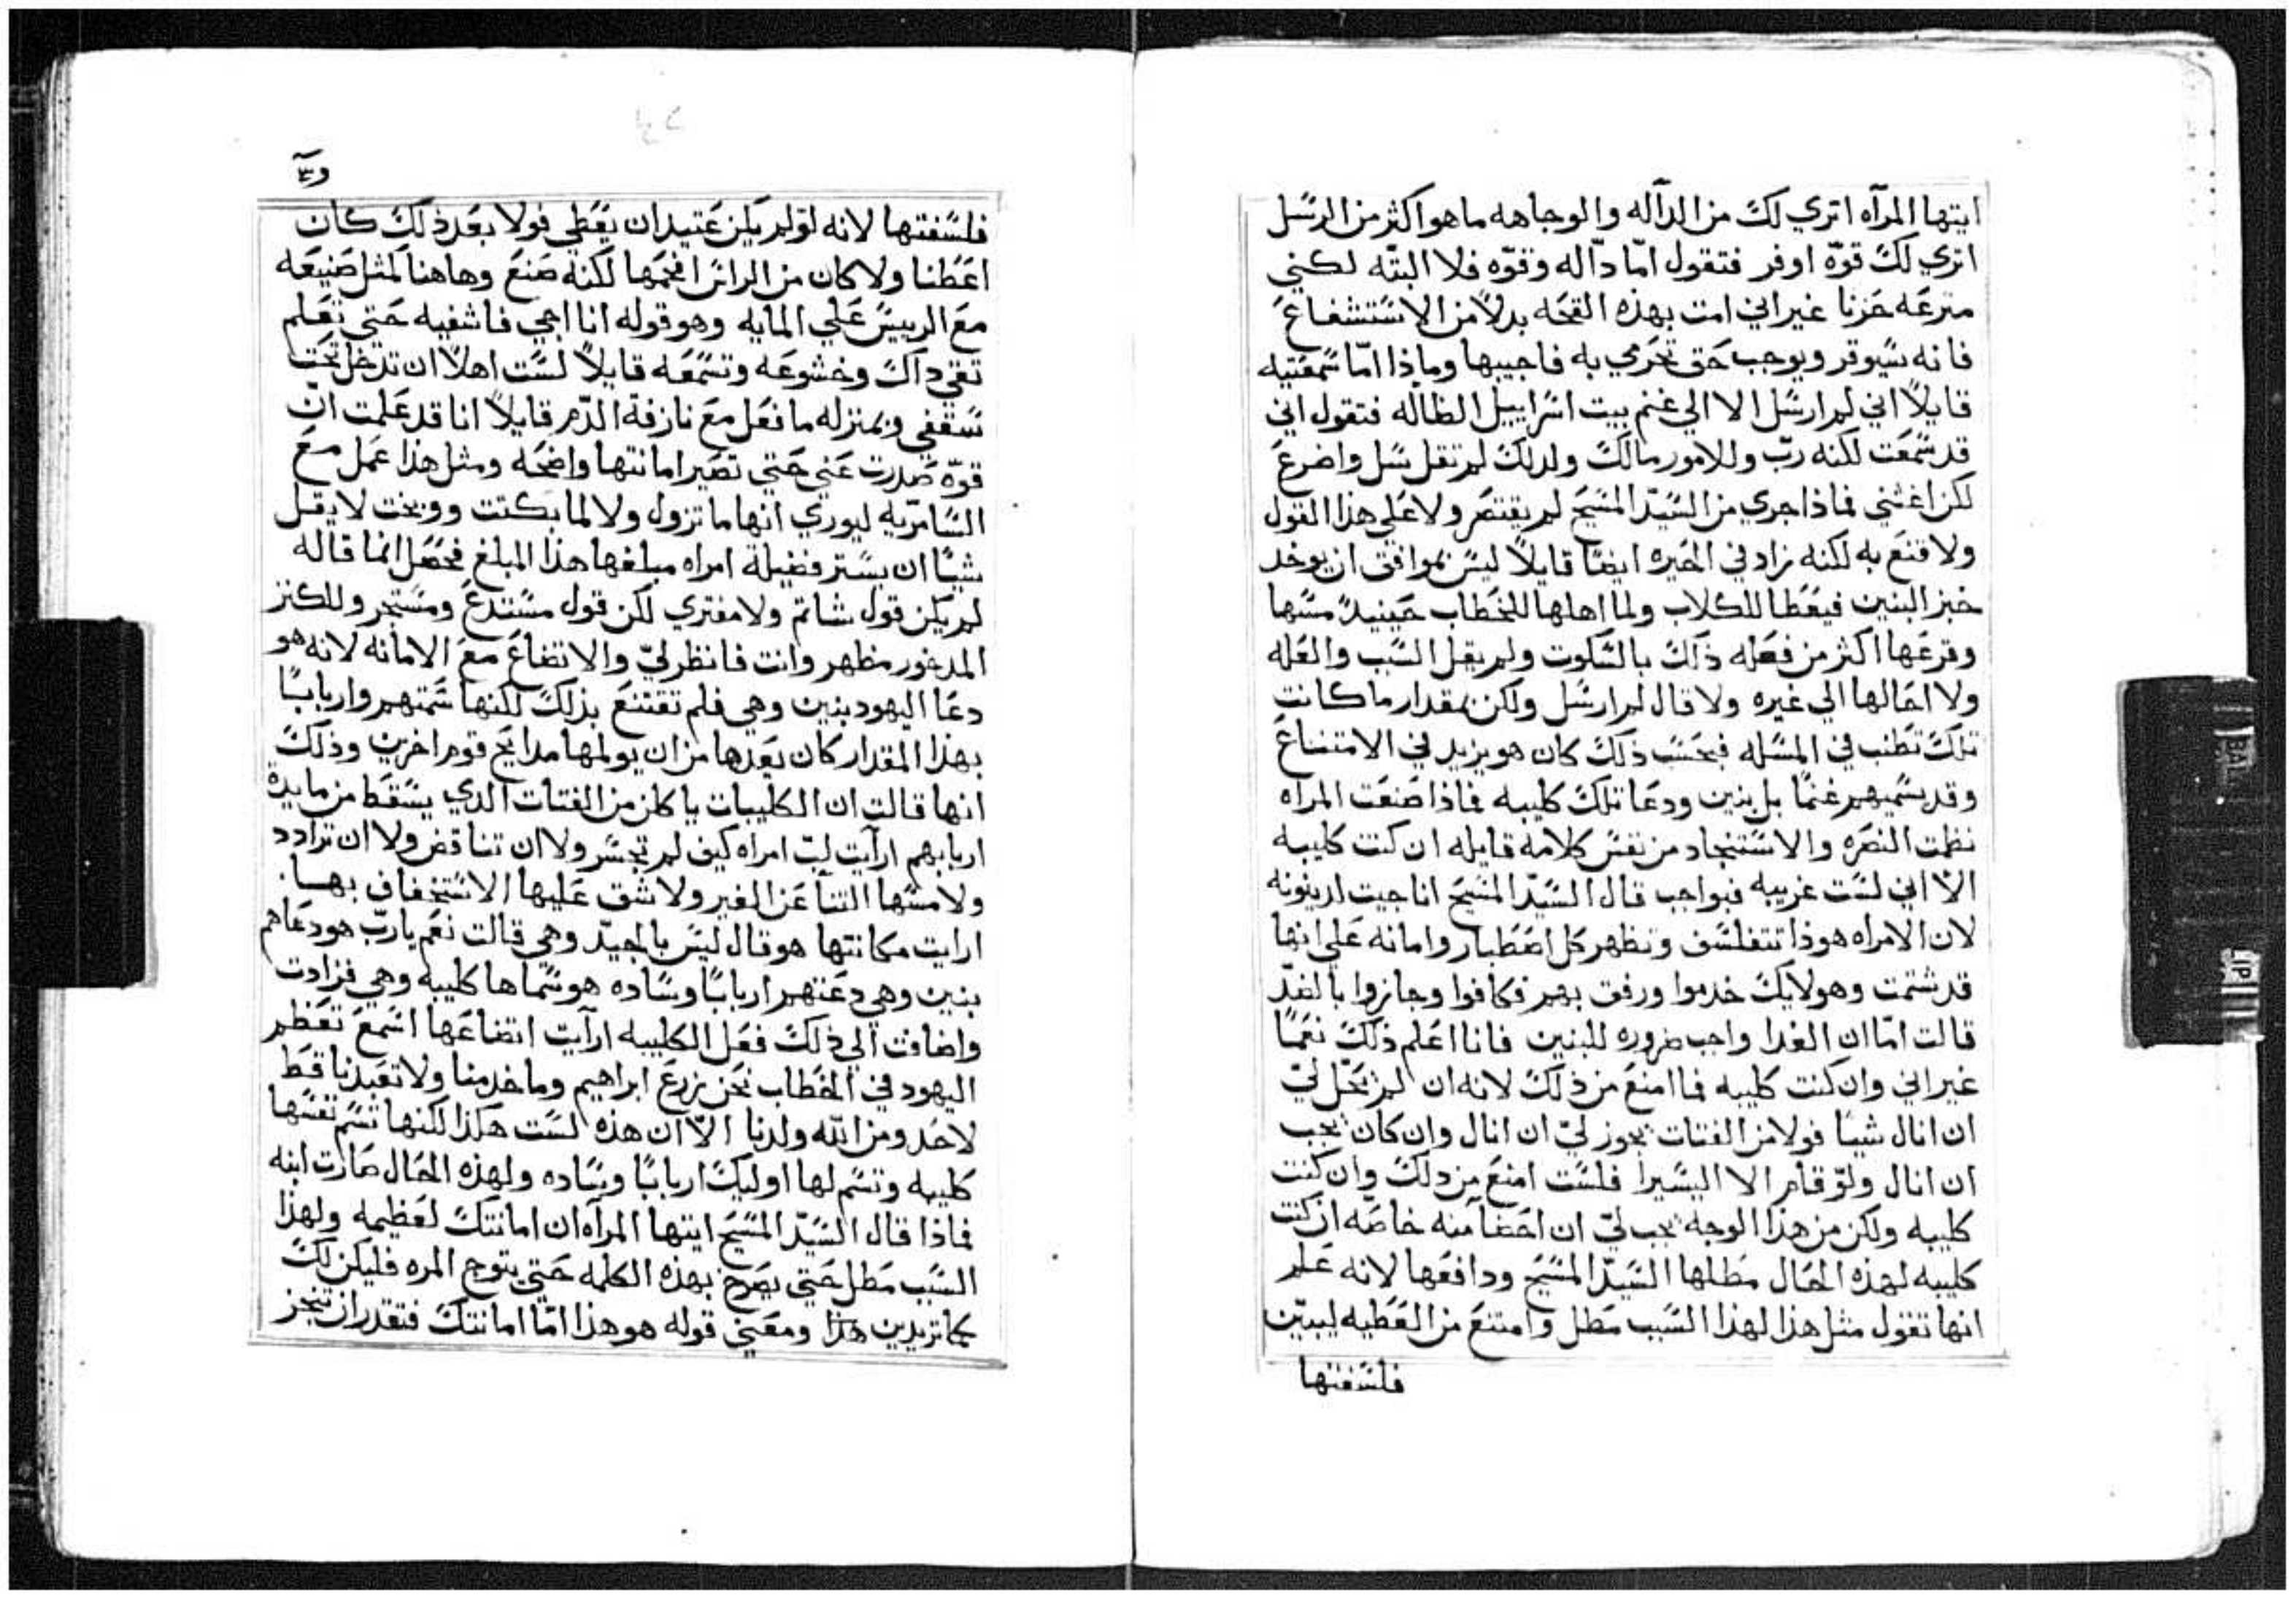 ايتها المرآه اتري لك من الدآله والوجاهه ما هو اكثر من الرسل
اتري لك قوّه اوفر فتقول امّا دآله وقوّه فلا البتّه لكني
مترعه حزنا غير اني امت بهذه القحه بدلاً من الاستشفاع
فانه سيوقر ويوجب حق تحرمي به فاجيبها وماذا امّا سمعتيه
قايلاً اني لم ارسل الا الي غنم بيت اسراييل الظاله فتقول اني
قد سمعت لكنه ربّ وللامور مالك ولدلك لم تقل سل واضرع
لكن اغثني فماذا جري من السيّد المسيح لم يقتصر ولا علي هذا القول
ولا قنع به لكنه زاد في الحيره ايضًا قايلاً ليس بموافق ان يوخد
خبز البنين فيعطا للكلاب ولما اهلها للخطاب حينيدٍ مسها
وقرعها اكثر من فعله ذلك بالسكوت ولم يقل السبب والعله
ولا احالها الي غيره ولا قال لم ارسل ولكن بمقدار ما كانت
تلك تطنب في المسله فبحسب ذلك كان هو يزيد في الامتناع
وقد يسميهم غنمًا بل بنين ودعا تلك كليبه فماذا صنعت المراه
نظمت النصره والاستنجاد من نفس كلامه قايله ان كنت كليبه
الاّ اني لست غريبه فبواجب قال السيّد المسيح انا جيت لدينونه
لان الامراه هوذا تتفلسف وتظهر كل اصطبار وامانه علي انها
قد شتمت وهولايك خدموا ورفق بهم فكافوا وجازوا بالضدّ
قالت امّا ان الغدا واجب ضروره للبنين فانا اعلم ذلك نعمًا
غير اني وان كنت كليبه فما امنع من ذلك لانه ان لم تحّل ليّ
ان انال شيًا فولا من الفتات يجوز ليّ ان انال وان كان يجب
ان انال ولو قام الا اليسيرا فلست امنع من دلك وان كنت
كليبه ولكن من هذا الوجه يجب ليّ ان احضا منه خاصّه ان كنت
كليبه لهذه الحال مطلها السيّد المسيح ودافعها لانه علم
انها تقول مثل هذا لهذا السبب مطل وامتنع من العطيه ليبيّن
فلسفتها
فلسفتها لانه لو لم يكن عتيدان يعطي فولا بعد ذلك كان
اعطنا ولا كان من الراس افحمها لكنه صنع وهاهنا كمثل صنيعه
مع الرييس علي المايه وهو قوله انا اجي فاشفيه حتي تعلم
تقي داك وخشوعه وتسمعه قايلاً لست اهلاً ان تدخل تحت
سقفي وبمنزله ما فعل مع نازفة الدّم قايلاً انا قد علمت انّ
قوّه صدرت عني حتي تصير امانتها واضحه ومثل هذا عمل مع
السامرّيه ليوري انها ما تزول ولا لما بكتت ووبخت لا يقل
شيًا ان يستر فضيلة امراه مبلغها هذا المبلغ فحصل انما قاله
لم يكن قول شاتم ولا مفتري لكن قول مستدع ومستجر وللكنز
المدخور مظهر وانت فانظر ليّ والاتضاع مع الامانه لانه هو
دعا اليهود بنين وهي فلم تقتنع بذلك لكنها سمتهم واربابًا
بهذا المقدار كان بعدها من ان يولمها مدايح قوم اخرين وذلك
انها قالت ان الكليبات ياكلن من الفتات الدي يسقط من مايدة
اربابهم ارآيت لبّ امراه كيف لم تجسر ولا ان تناقض ولا ان ترادد
ولا مسها الثنا عن الغير ولا شق عليها الاستخفاف بهسا.
ارايت مكانتها هو قال ليس بالجيدّ وهي قالت نعم يا ربّ هو دعاهم
بنين وهي دعتهم اربابًا وساده هو سماها كليبه وهي فزادت
واضافت الي ذلك فعل الكليبه ارآيت اتضاعها اسمع تعظم
اليهود في الخطاب نحن زرع ابراهيم وما خدمنا ولا تعبدنا قط
لاحد ومن الله ولدنا الاّ ان هذه لست هكذا لكنها تسم نفسها
كليبه وتسم لها اوليك اربابًا وساده ولهذه الحال صارت ابنه
فماذا قال السيّد المسيح ايتها المرآه ان امانتك لعظيمه ولهذا
السبب مطل حتي يصرح بهذه الكلمه حتي يتوج المره فليكن لك
كما تريدين هذا ومعني قوله هو هذا امّا امانتك فتقدر ان تنجز